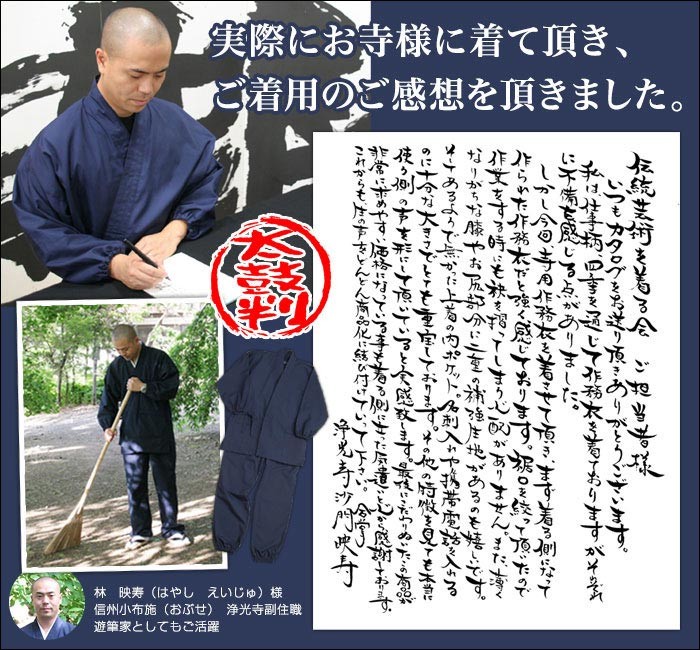 実際にお寺様に着て頂き、
ご着用のご感想を頂きました。
太鼓判
伝統芸術を着る会 ご担当者様
いつもカタログをお送り頂きありがとうございます。
私は仕事柄、四季を通じて作務衣を着ておりますが
に不備を感じる点がありました。
しかし今回寺用作務衣を着させて頂き、ます着る側になって
作られた作務衣だと強く感じております。裾口を絞って頂いたので
作業をする時にも裾を摺ってしまう心配がありません。また、薄く
なりがちな膝やお尻部分に二重の補強生地があるのも嬉しいです。
そしてあるようで無かった上着の内ポケット。名刺入れや携帯電話を入れる
のに十分な大きさでとても重宝しております。その他の特徴を見ても本当に
使う側の声を形にして頂いていると実感致します。最後にこだわりぬいたこの商品が
非常に求めやすい価格になっている事も着る側に立った気遣いと心から感謝しております。
これからも生の声をどんどん商品化に結び付けていって下さい。合掌
浄光寺沙門映寿
林 映寿（はやし えいじゅ）様
信州小布施（おぶせ） 浄光寺副住職
遊筆家としてもご活躍